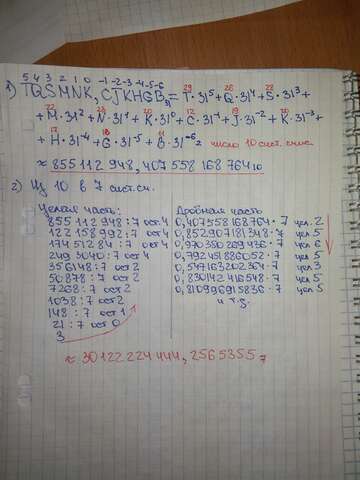 5 4 3 2 1 0 -1 -2 -3 -4 -5 -6
1) TQSMNK, CJKHGB₃₁ = T·31⁵ + Q·31⁴ + S·31³ +
29 26 28
+ M·31² + N·31¹ + K·31⁰ + C·31⁻¹ + J·31⁻² + K·31⁻³ +
22 23 20 12 19 20
+ H·31⁻⁴ + G·31⁻⁵ + B·31⁻⁶ = число 10 сист. счис.
17 16 11
≈ 855 112 948, 407 558 168 764₁₀
2) Из 10 в 7 сист. сч.
Целая часть:
855 112 948 : 7 ост 4
122 158 992 : 7 ост 4
174 512 84 : 7 ост 4
249 3040 : 7 ост 4
356148 : 7 ост 2
50 878 : 7 ост 2
7268 : 7 ост 2
1038 : 7 ост 2
148 : 7 ост 1
21 : 7 ост 0
3
Дробная часть
0,407558168764 · 7 цел. 2
0,852907181348 · 7 цел 5
0,970350269436 · 7 цел 6
0,792451886052 · 7 цел 5
0,547163202364 · 7 цел 3
0,830142416548 · 7 цел 5
0,810996915836 · 7 цел 5
и т.д.
≈ 30122 224 444, 2565355₇